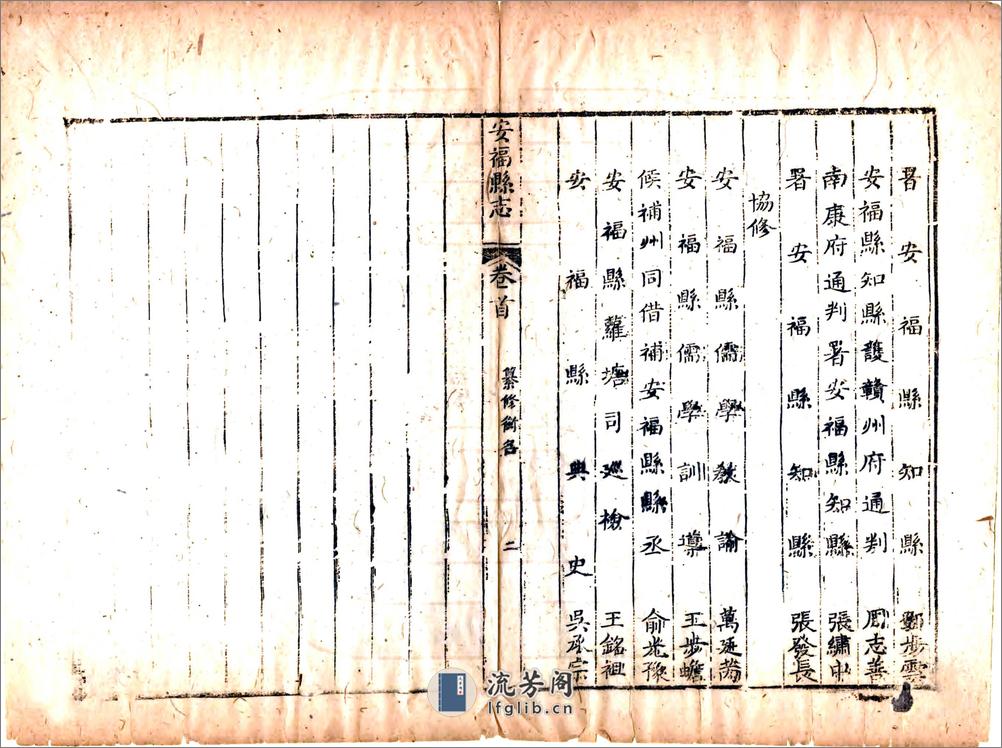 署安福縣知縣 鄒步雲
安福縣知縣護贛州府通判 周志善
南康府通判署安福縣知縣 張繡中
署安福縣知縣 張發長
協修
安福縣儒學教諭 萬
安福縣儒學訓導 王步蟾
候補州同借補安福縣縣丞 俞兆豫
安福縣蘿塘司巡檢 王銘祖
安福縣典史 吳承宗
安福縣志
卷首
纂修銜名
二
流芳阁
lfglib.cn